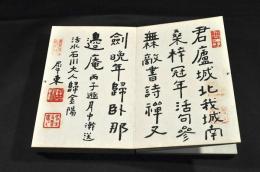 君廬城北我城南
桑梓冠年活句參
無敵書詩禪又
劍晚年歸卧那
邊庵 丙子蜡月中澣送
活水石川大人歸金陽